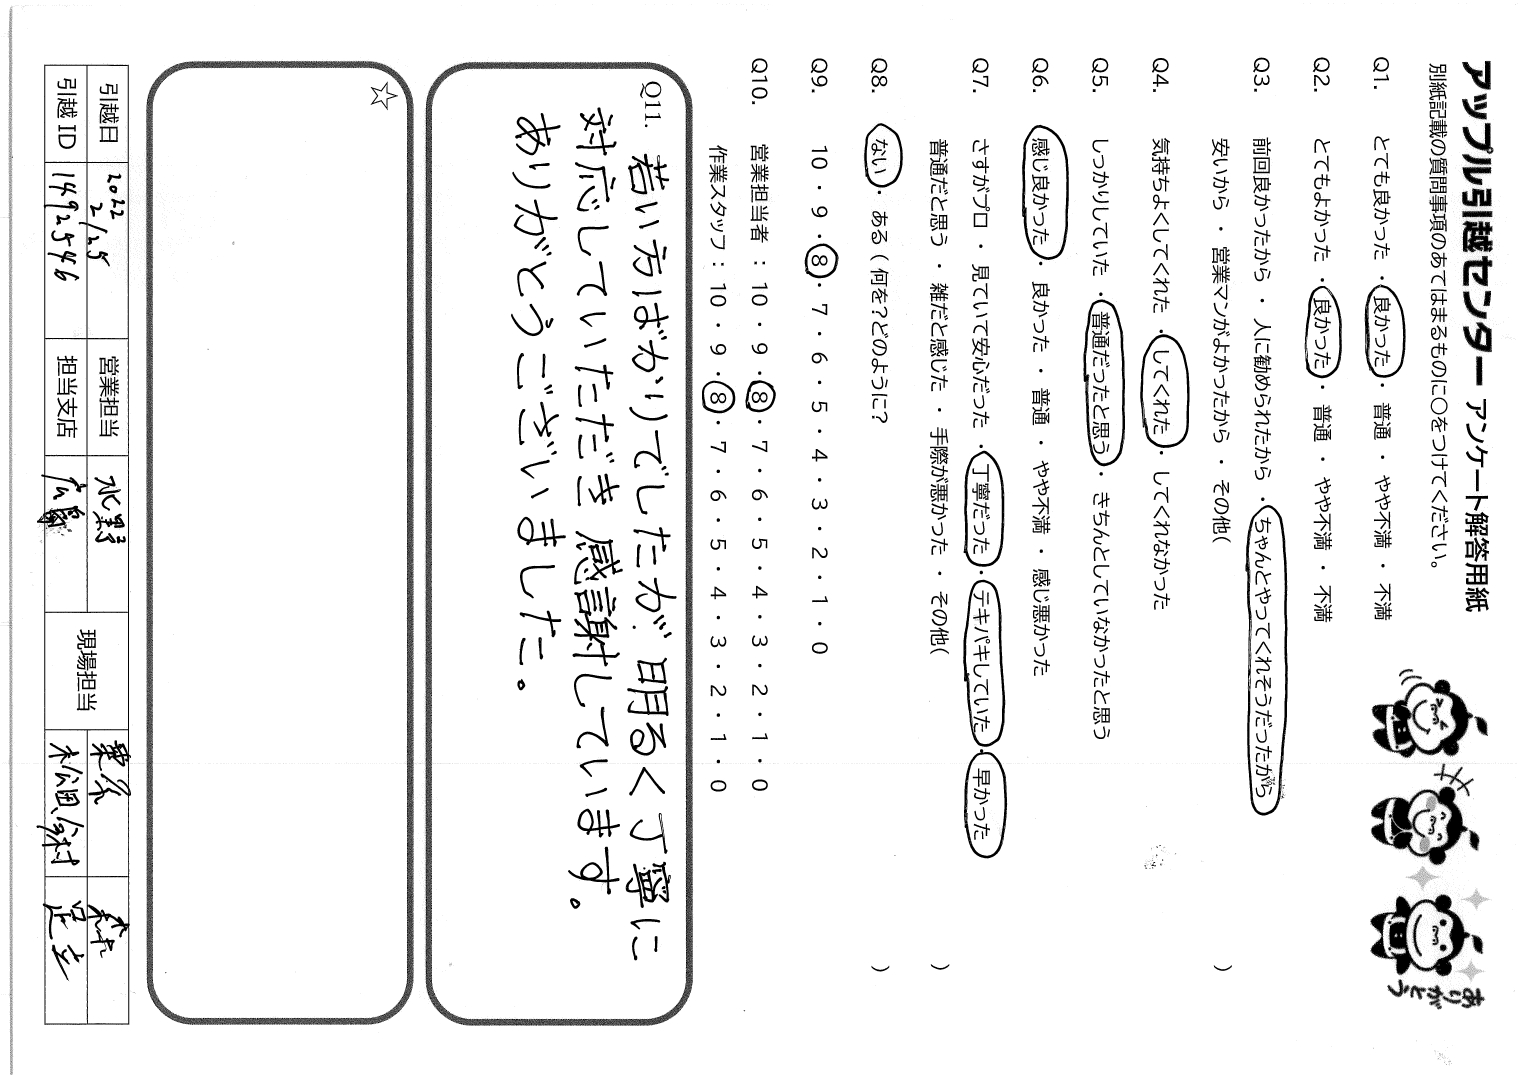 アップル引越センター アンケート解答用紙
別紙記載の質問事項のあてはまるものに○をつけてください。
Q1. とても良かった ・ 良かった ・ 普通 ・ やや不満 ・ 不満
Q2. とてもよかった ・ 良かった ・ 普通 ・ やや不満 ・ 不満
Q3. 前回良かったから ・ 人に勧められたから ・ ちゃんとやってくれそうだったから
安いから ・ 営業マンがよかったから ・ その他( )
Q4. 気持ちよくしてくれた ・ してくれた ・ してくれなかった
Q5. しっかりしていた ・ 普通だったと思う ・ きちんとしていなかったと思う
Q6. 感じ良かった ・ 良かった ・ 普通 ・ やや不満 ・ 感じ悪かった
Q7. さすがプロ ・ 見ていて安心だった ・ 丁寧だった ・ テキパキしていた ・ 早かった
普通だと思う ・ 雑だと感じた ・ 手際が悪かった ・ その他( )
Q8. ない ・ ある ( 何を？どのように？ )
Q9. 10 ・ 9 ・ 8 ・ 7 ・ 6 ・ 5 ・ 4 ・ 3 ・ 2 ・ 1 ・ 0
Q10. 営業担当者 : 10 ・ 9 ・ 8 ・ 7 ・ 6 ・ 5 ・ 4 ・ 3 ・ 2 ・ 1 ・ 0
作業スタッフ : 10 ・ 9 ・ 8 ・ 7 ・ 6 ・ 5 ・ 4 ・ 3 ・ 2 ・ 1 ・ 0
ありがとう
Q11. 若い方ばかりでしたが、明るく丁寧に
対応していただき 感謝しています。
ありがとうございました。
☆
引越日 2022 2/25 営業担当 水野 現場担当 森
引越ID 14925446 担当支店 松田 今村 足立